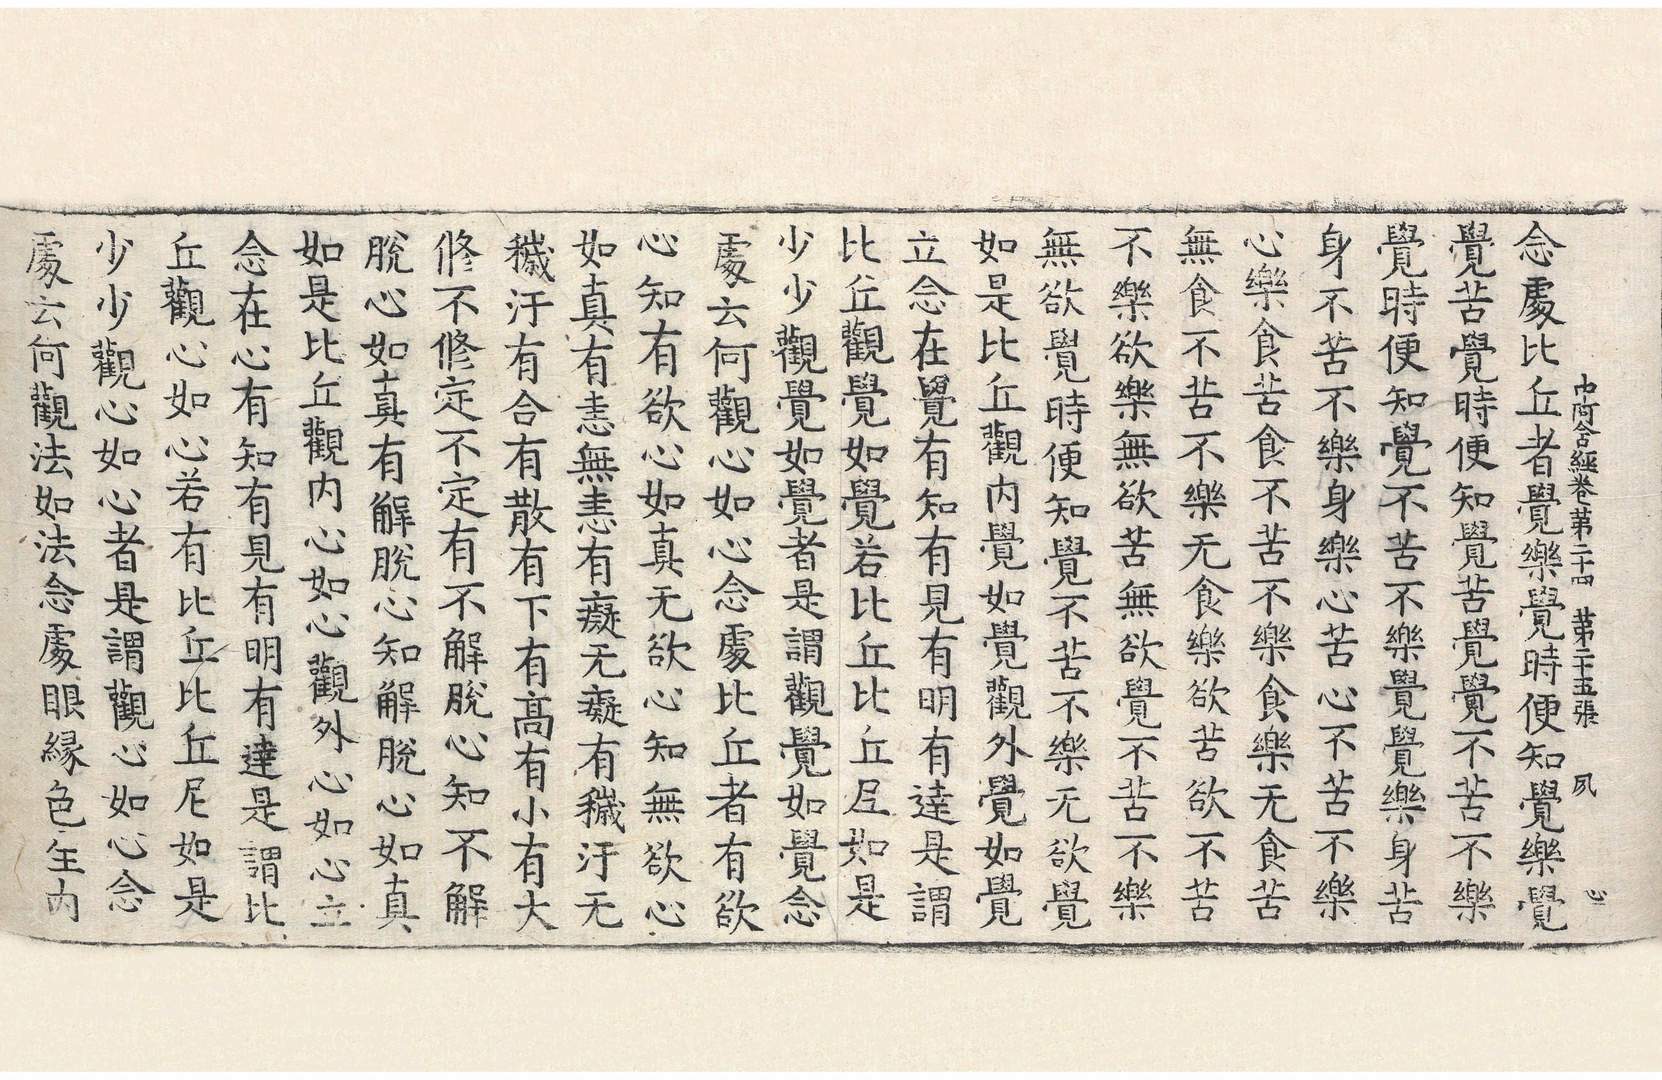 中阿含經卷苐二十四 苐二十五張 夙 心
念處比丘者覺樂覺時便知覺樂覺
覺苦覺時便知覺苦覺覺不苦不樂
覺時便知覺不苦不樂覺覺樂身苦
身不苦不樂身樂心苦心不苦不樂
心樂食苦食不苦不樂食樂无食苦
無食不苦不樂无食樂欲苦欲不苦
不樂欲樂無欲苦無欲覺不苦不樂
無欲覺時便知覺不苦不樂无欲覺
如是比丘觀内覺如覺觀外覺如覺
立念在覺有知有見有明有達是謂
比丘觀覺如覺若比丘比丘尼如是
少少觀覺如覺者是謂觀覺如覺念
處云何觀心如心念處比丘者有欲
心知有欲心如真无欲心知無欲心
如真有恚無恚有癡无癡有穢汙无
穢汙有合有散有下有高有小有大
修不修定不定有不解脫心知不解
脫心如真有解脫心知解脫心如真
如是比丘觀内心如心觀外心如心立
念在心有知有見有明有達是謂比
丘觀心如心若有比丘比丘尼如是
少少觀心如心者是謂觀心如心念
處云何觀法如法念處眼緣色生内